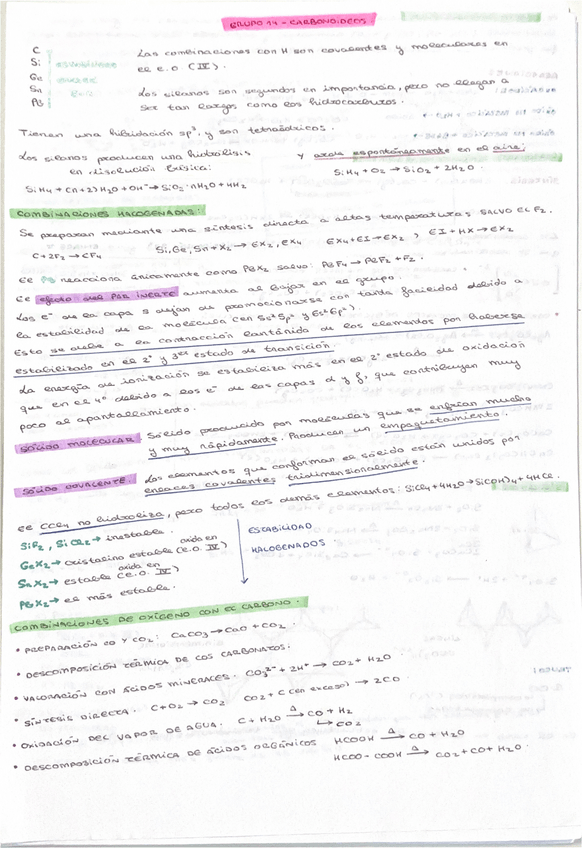 GRUPO 14 - CARBONOIDEOS
C
Si
Ge
Sn
Pb
Las combinaciones con H son covalentes y moleculares en
el e.o (IV).
Los silanos son segundos en importancia, pero no llegan a
ser tan largos como los hidrocarburos.
Tienen una hibidación sp³, y son tetraédricos.
Los silanos producen una hidrólisis
en disolución básica:
SiH₄ + (n+2)H₂O + OH⁻ → SiO₂·nH₂O + 4H₂
y arde espontáneamente en el aire:
SiH₄ + O₂ → SiO₂ + 2H₂O.
COMBINACIONES HALOGENADAS:
Se preparan mediante una síntesis directa a altas temperaturas SALVO EL F₂.
C + 2F₂ → CF₄ Si, Ge, Sn + X₂ → EX₂, EX₄ EX₄ + EI → EX₂ ; EI + HX → EX₂
El Pb reacciona únicamente como PbX₂ salvo: PbF₄ → PbF₂ + F₂.
El efecto del PAR INERTE aumenta al bajar en el grupo.
Los e⁻ de la capa s dejan de promocionarse con tanta facilidad debido a
la estabilidad de la molécula (en 5s²5p² y 6s²6p²)
Esto se debe a la contracción lantánida de los elementos por haberse
estabilizado en el 2º y 3er estado de transición.
La energía de ionización se estabiliza más en el 2º estado de oxidación
que en el 4º debido a los e⁻ de las capas d y f, que contribuyen muy
poco al apantallamiento.
SÓLIDO MOLECULAR Sólido producido por moléculas que se enfrían mucho
y muy rápidamente. Producen un empaquetamiento.
SÓLIDO COVALENTE. Los elementos que conforman el sólido están unidos por
enlaces covalentes tridimensionalmente.
El CCl₄ no hidroliza, pero todos los demás elementos: SiCl₄ + 4H₂O → Si(OH)₄ + 4HCl.
SiF₂, SiCl₂ → inestable.
GeX₂ → cristalino estable oxida en (e.o. IV)
SnX₂ → estable oxida en (e.o. IV)
PbX₂ → el más estable.
ESTABILIDAD
HALOGENADOS
COMBINACIONES DE OXÍGENO CON EL CARBONO.
• PREPARACIÓN CO Y CO₂: CaCO₃ → CaO + CO₂.
• DESCOMPOSICIÓN TÉRMICA DE LOS CARBONATOS.
• VALORACIÓN CON ÁCIDOS MINERALES. CO₃²⁻ + 2H⁺ → CO₂ + H₂O
• SÍNTESIS DIRECTA. C + O₂ → CO₂ CO₂ + C (en exceso) → 2CO.
• OXIDACIÓN DEL VAPOR DE AGUA. C + H₂O Δ→ CO + H₂
↳ CO₂
• DESCOMPOSICIÓN TÉRMICA DE ÁCIDOS ORGÁNICOS HCOOH Δ→ CO + H₂O
HCOO - COOH Δ→ CO₂ + CO + H₂O.